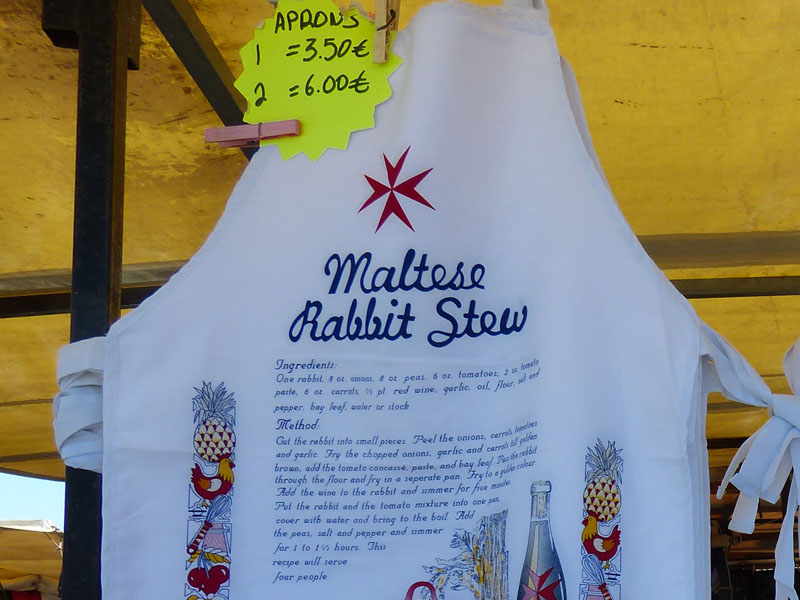 APRONS
1 = 3.50€
2 = 6.00€
Maltese
Rabbit Stew
Ingredients:
One rabbit, 8 oz. onions, 8 oz. peas, 6 oz. tomatoes, 2 oz. tomato
paste, 6 oz. carrots, ½ pt. red wine, garlic, oil, flour, salt and
pepper, bay leaf, water or stock.
Method:
Cut the rabbit into small pieces. Peel the onions, carrots, tomatoes
and garlic. Fry the chopped onions, garlic and carrots till golden
brown, add the tomato concassé, paste, and bay leaf. Pass the rabbit
through the flour and fry in a seperate pan. Fry to a golden colour.
Add the wine to the rabbit and simmer for five minutes.
Put the rabbit and the tomato mixture into one pan,
cover with water and bring to the boil. Add
the peas, salt and pepper and simmer
for 1 to 1½ hours. This
recipe will serve
four people.